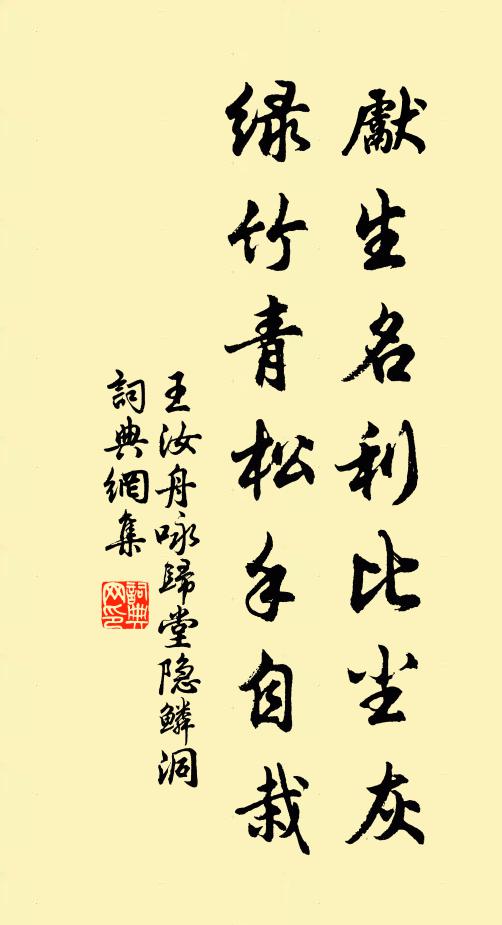 獻生名利比尘灰
绿竹青松手自栽
王汝舟咏歸堂隐鱗洞
詞典網集
詞典
网印